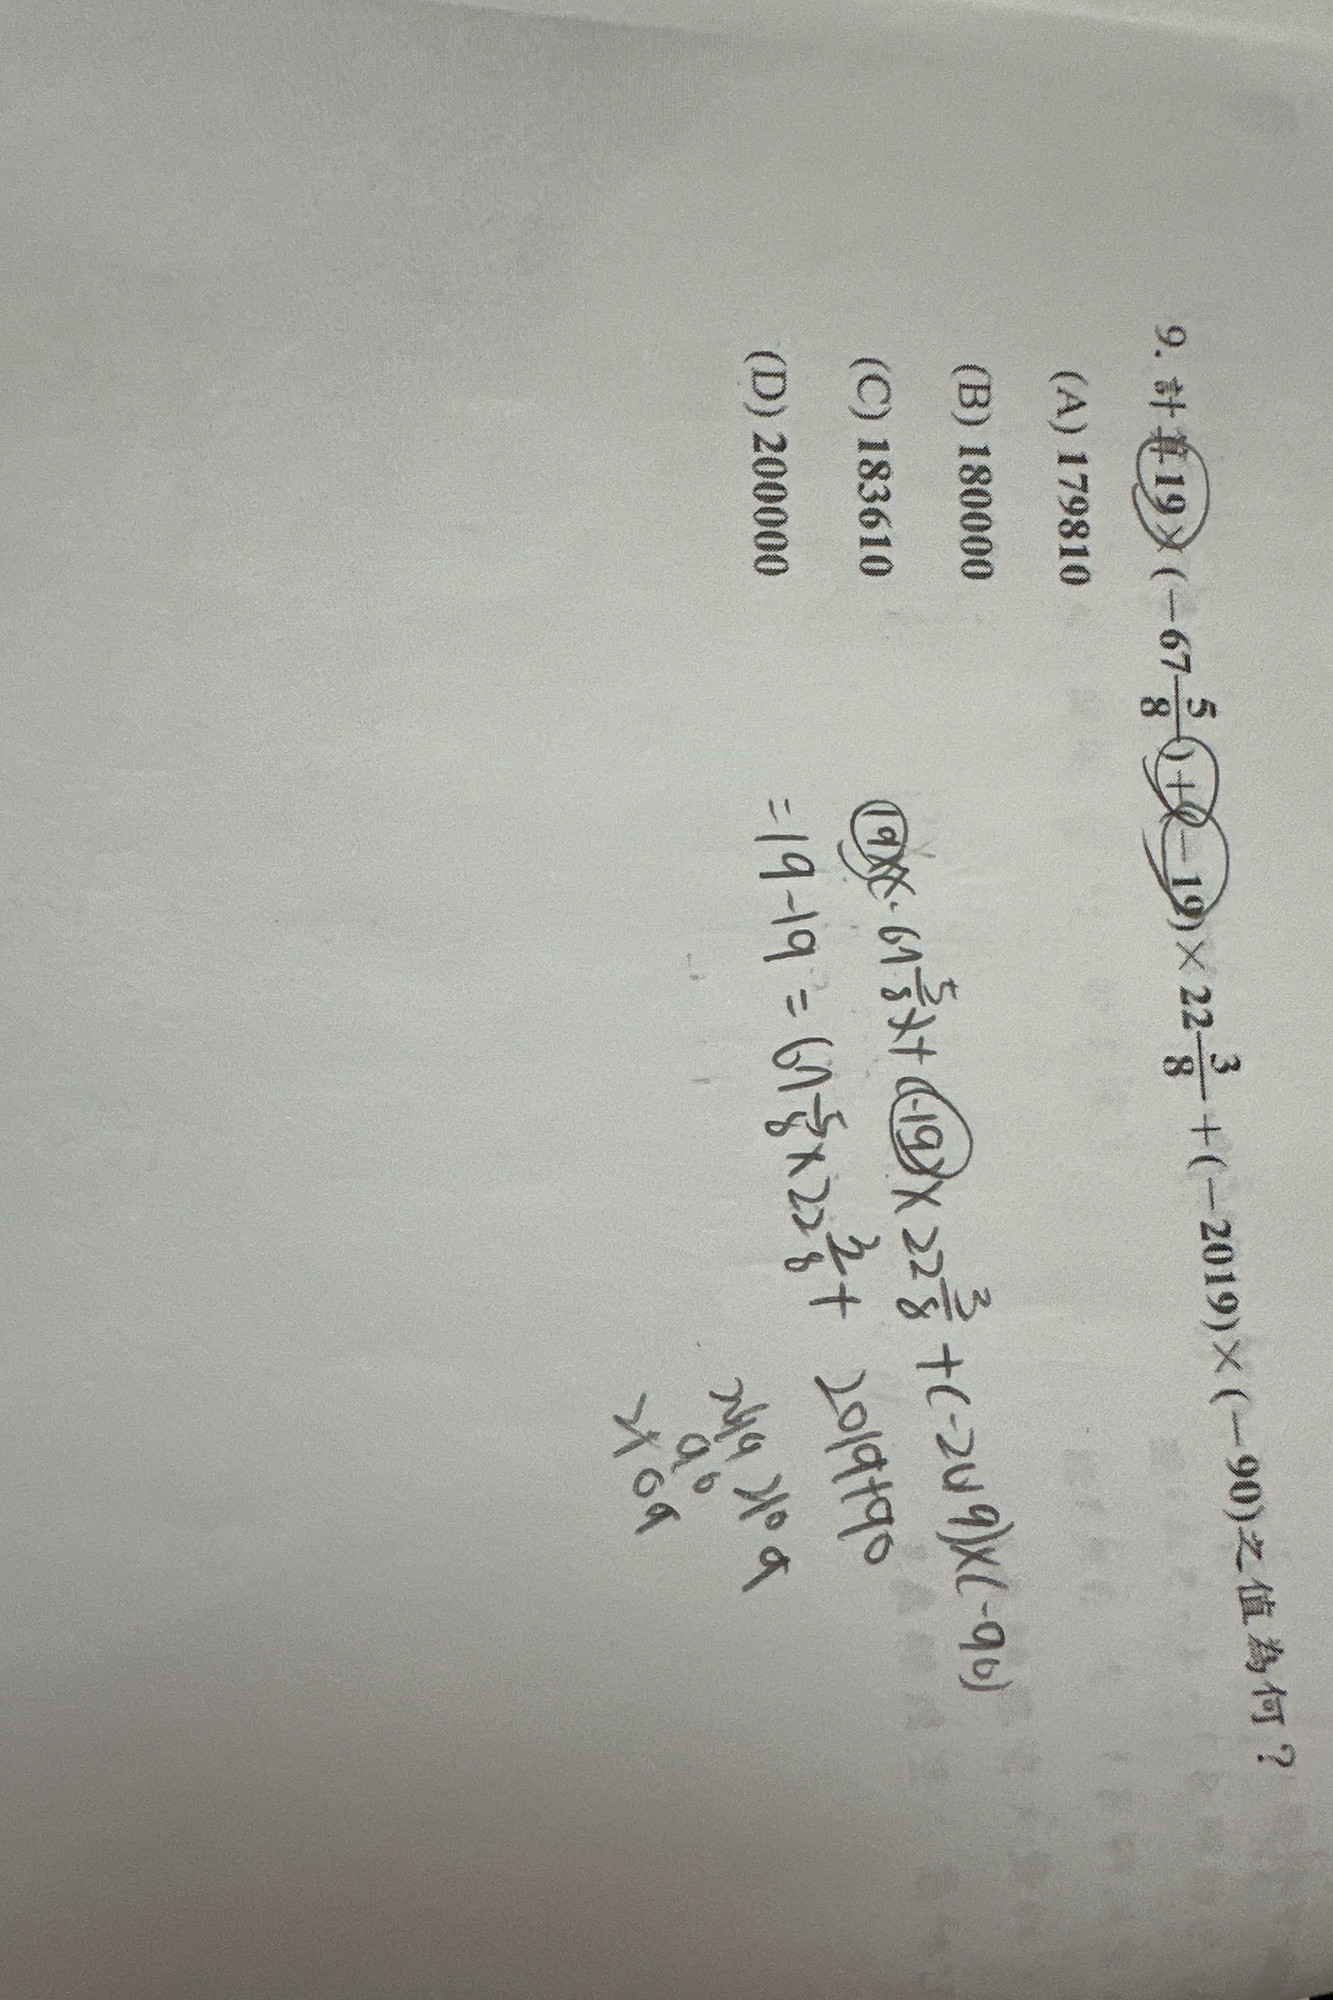 9. 計算 19×(−67 5/8)+(−19)×22 3/8+(−2019)×(−90)之值為何？
(A) 179810
(B) 180000
(C) 183610
(D) 200000
19× 67 5/8 + (-19)× 22 3/8 +(-2019)×(-90)
=19-19 = 67 5/8 × 22 3/8 + 2019+90
2019
90
2109
2109